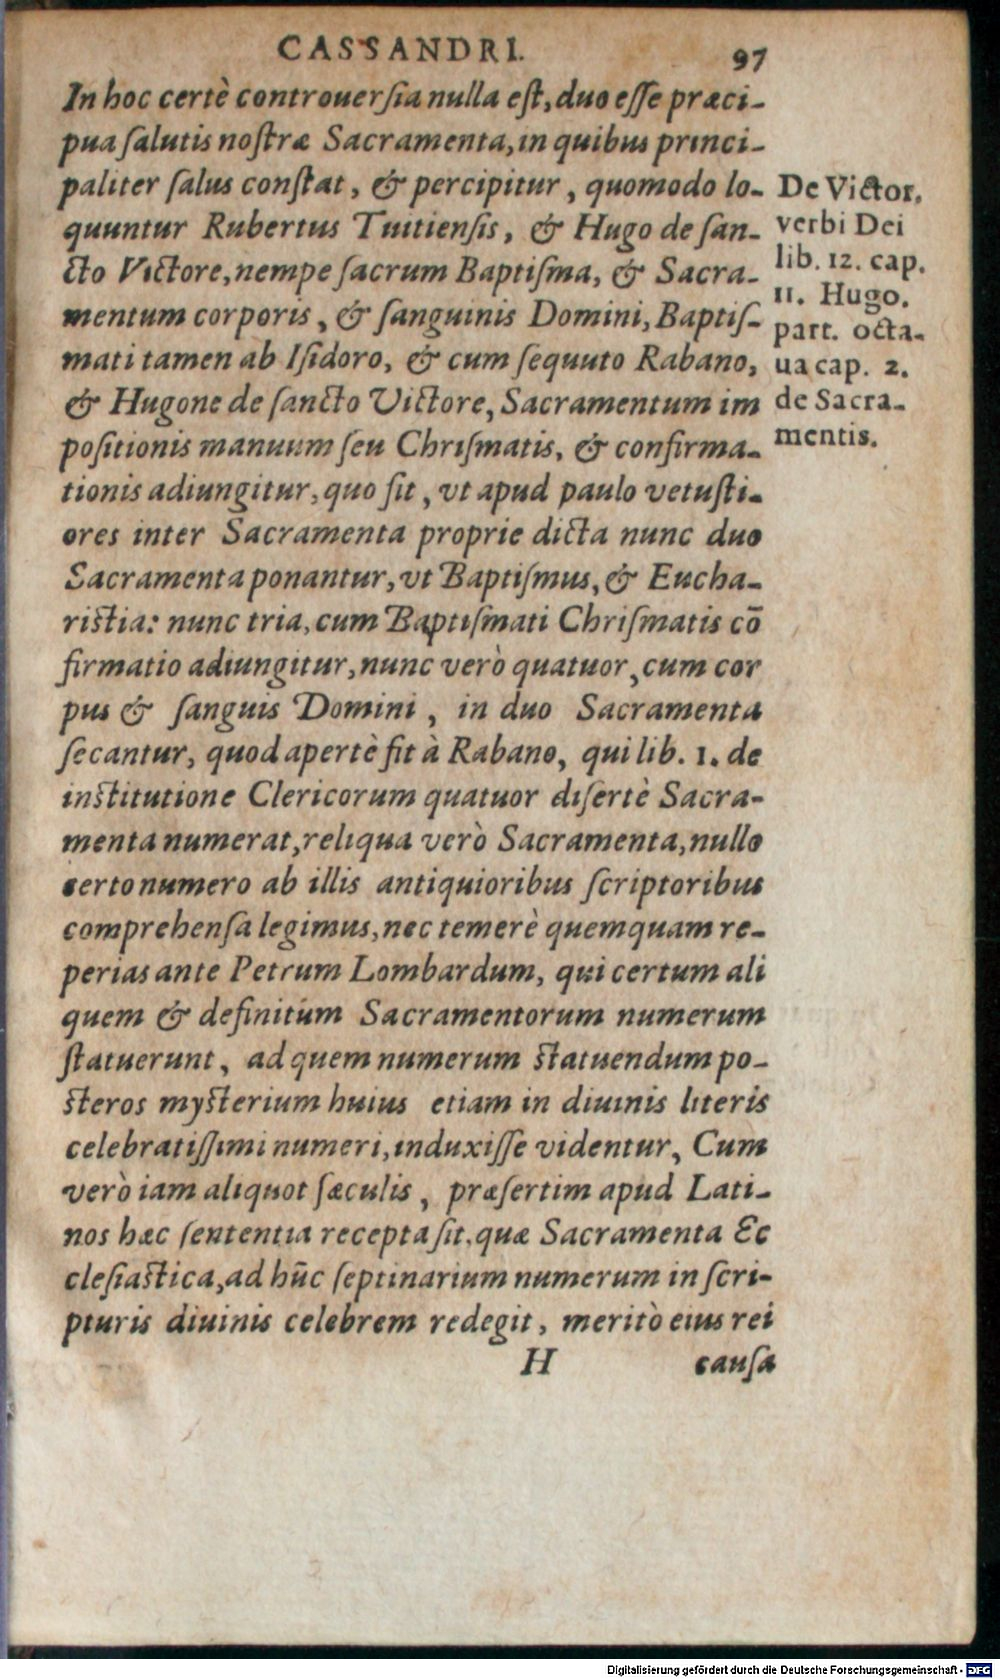 CASSANDRI. 97
In hoc certè controuerſia nulla eſt, duo eſſe præci-
pua ſalutis noſtræ Sacramenta, in quibus princi-
paliter ſalus conſtat, & percipitur, quomodo lo-
quuntur Rubertus Tuitienſis, & Hugo de ſan-
cto Victore, nempe ſacrum Baptiſma, & Sacra-
mentum corporis, & ſanguinis Domini, Baptiſ-
mati tamen ab Iſidoro, & cum ſequuto Rabano,
& Hugone de ſancto Victore, Sacramentum im
poſitionis manuum ſeu Chriſmatis, & confirma-
tionis adiungitur, quo fit, vt apud paulo vetuſti-
ores inter Sacramenta proprie dicta nunc duo
Sacramenta ponantur, vt Baptiſmus, & Eucha-
riſtia: nunc tria, cum Baptiſmati Chriſmatis cō
firmatio adiungitur, nunc verò quatuor, cum cor
pus & ſanguis Domini, in duo Sacramenta
ſecantur, quod apertè fit à Rabano, qui lib. 1. de
inſtitutione Clericorum quatuor diſertè Sacra-
menta numerat, reliqua verò Sacramenta, nullo
certo numero ab illis antiquioribus ſcriptoribus
comprehenſa legimus, nec temerè quemquam re-
perias ante Petrum Lombardum, qui certum ali
quem & definitúm Sacramentorum numerum
ſtatuerunt, ad quem numerum ſtatuendum po-
ſteros myſterium huius etiam in diuinis literis
celebratiſſimi numeri, induxiſſe videntur, Cum
verò iam aliquot ſæculis, præſertim apud Lati-
nos hæc ſententia recepta ſit. quæ Sacramenta Ec
cleſiaſtica, ad hūc ſeptinarium numerum in ſcri-
pturis diuinis celebrem redegit, meritò eius rei
H cauſa
De Victor.
verbi Dei
lib. 12. cap.
11. Hugo.
part. octa-
ua cap. 2.
de Sacra-
mentis.
Digitalisierung gefördert durch die Deutsche Forschungsgemeinschaft - DFG